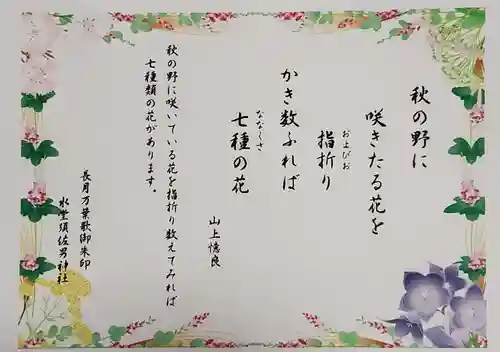 秋の野に
咲きたる花を
おょびお
指折り
かき数ふれば
ななくさ
七種の花
山上憶良
秋の野に咲いている花を指折り数えてみれば
七種類の花があります。
長月万葉歌御朱印
水堂須佐男神社